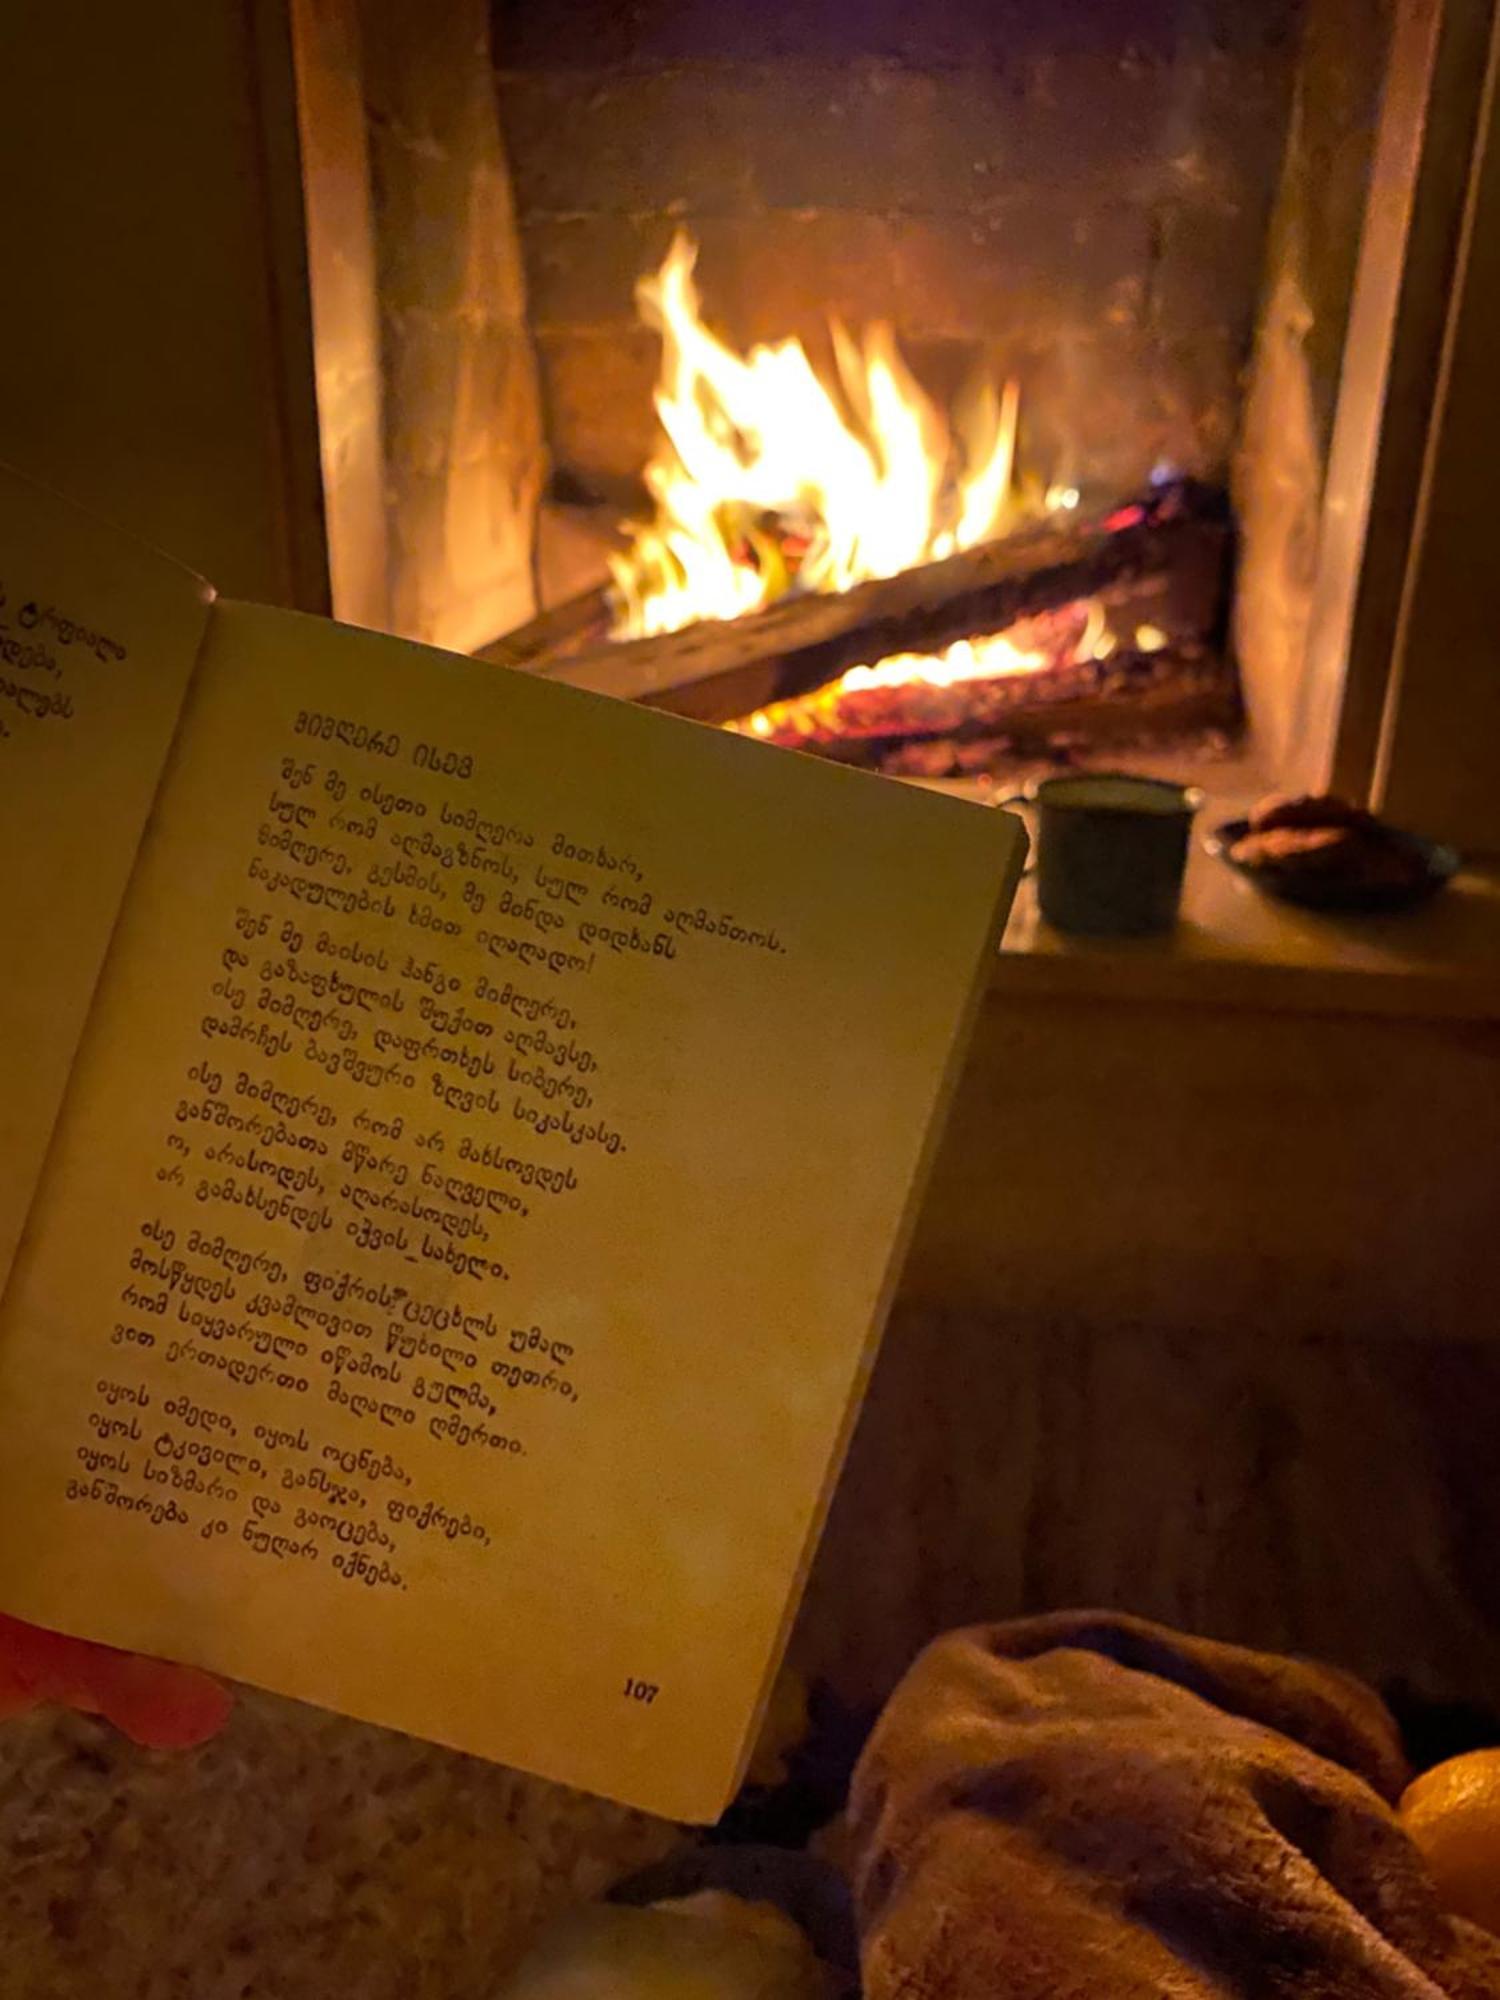 ტრფიალი
მიმღერე ისევ
შენ მე ისეთი სიმღერა მითხარ,
სულ რომ აღმაგზნოს, სულ რომ აღმანთოს.
მიმღერე, გესმის, მე მინდა დიდხანს
ნაკადულების ხმით იღაღადო!
შენ მე მაისის ჰანგი მიმღერე,
და გაზაფხულის შუქით აღმავსე,
ისე მიმღერე, დაფრთხეს სიბერე,
დამრჩეს ბავშვური ზღვის სიკასკასე.
ისე მიმღერე, რომ არ მახსოვდეს
განშორებათა მწარე ნაღველი,
ო, არასოდეს, აღარასოდეს,
არ გამახსენდეს იჭვის სახელი.
ისე მიმღერე, ფიქრის ცეცხლს უმალ
მოსწყდეს კვამლივით წუხილი თეთრი,
რომ სიყვარული იწამოს გულმა,
ვით ერთადერთი მაღალი ღმერთი.
იყოს იმედი, იყოს ოცნება,
იყოს ტკივილი, განსჯა, ფიქრები,
იყოს სიზმარი და გაოცება,
განშორება კი ნუღარ იქნება.
107